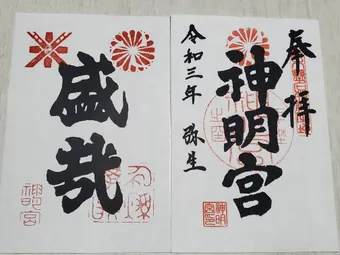 奉拝
神明宮
令和三年 弥生
神明宮
盛哉
神明宮